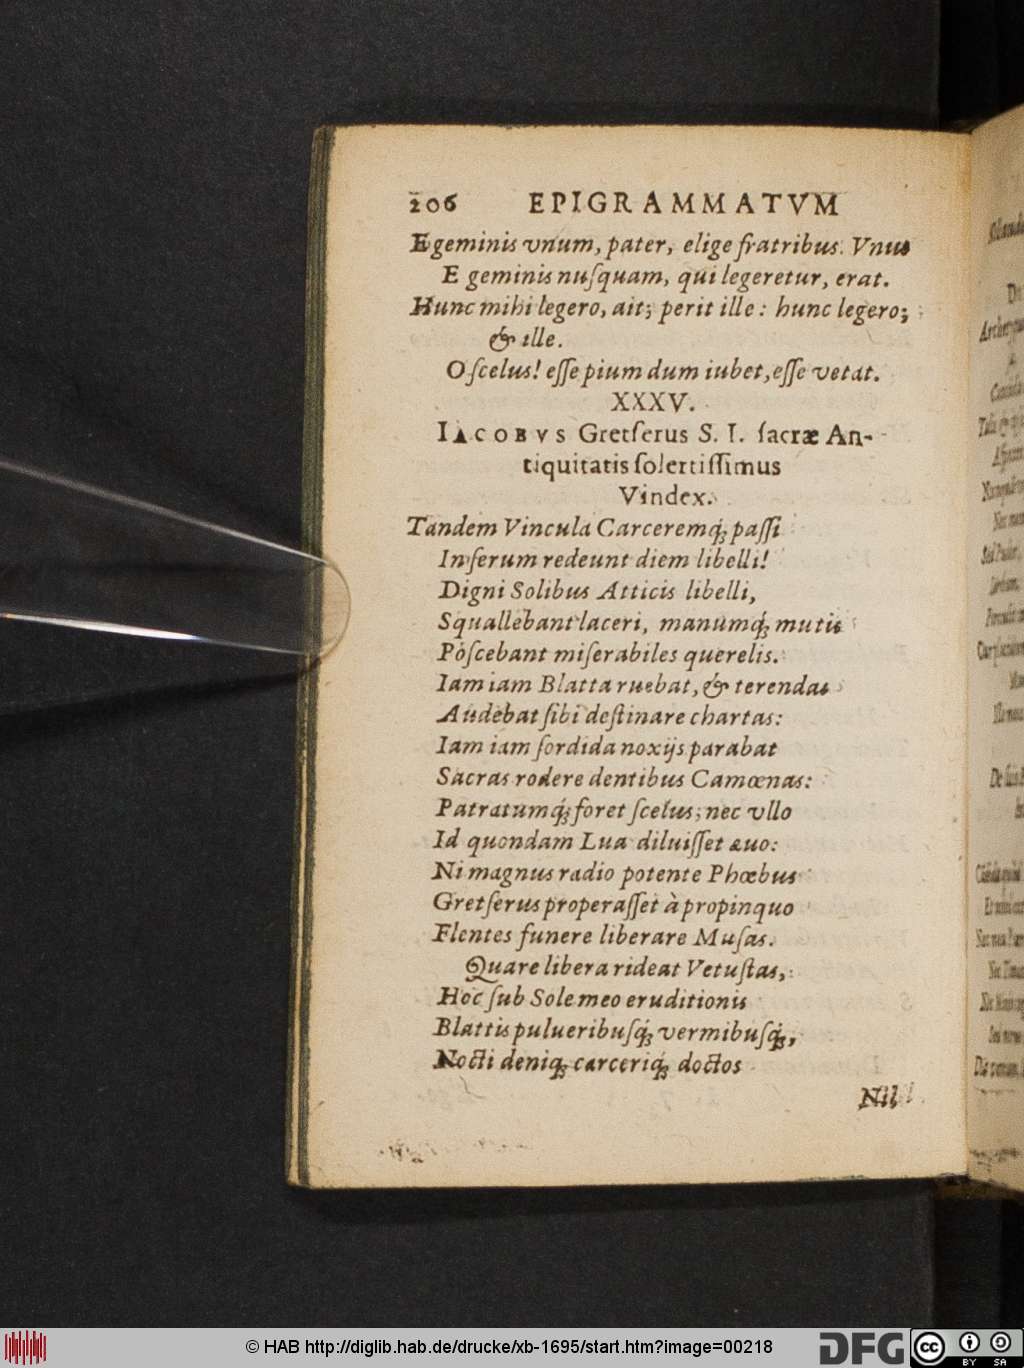 206 EPIGRAMMATVM
E geminis vnum, pater, elige fratribus. Vnus
E geminis nuſquam, qui legeretur, erat.
Hunc mihi legero, ait; perit ille: hunc legero;
& ille.
O ſcelus! eſſe pium dum iubet, eſſe vetat.
XXXV.
IACOBVS Gretſerus S. I. ſacræ An-
tiquitatis ſolertiſſimus
Vindex.
Tandem Vincula Carceremq́; paſſi
Inferum redeunt diem libelli!
Digni Solibus Atticis libelli,
Squallebant laceri, manumq́; mutis
Poſcebant miſerabiles querelis.
Iam iam Blatta ruebat, & terendas
Audebat ſibi deſtinare chartas:
Iam iam ſordida noxijs parabat
Sacras rodere dentibus Camœnas:
Patratumq́; foret ſcelus; nec vllo
Id quondam Lua diluiſſet æuo:
Ni magnus radio potente Phœbus
Gretſerus properaſſet à propinquo
Flentes funere liberare Muſas.
Quare libera rideat Vetuſtas,
Hoc ſub Sole meo eruditionis
Blattis pulueribuſq́; vermibuſq́;,
Nocti deniq; carceriq́; doctos
Nil
© HAB http://diglib.hab.de/drucke/xb-1695/start.htm?image=00218
DFG
cc BY SA